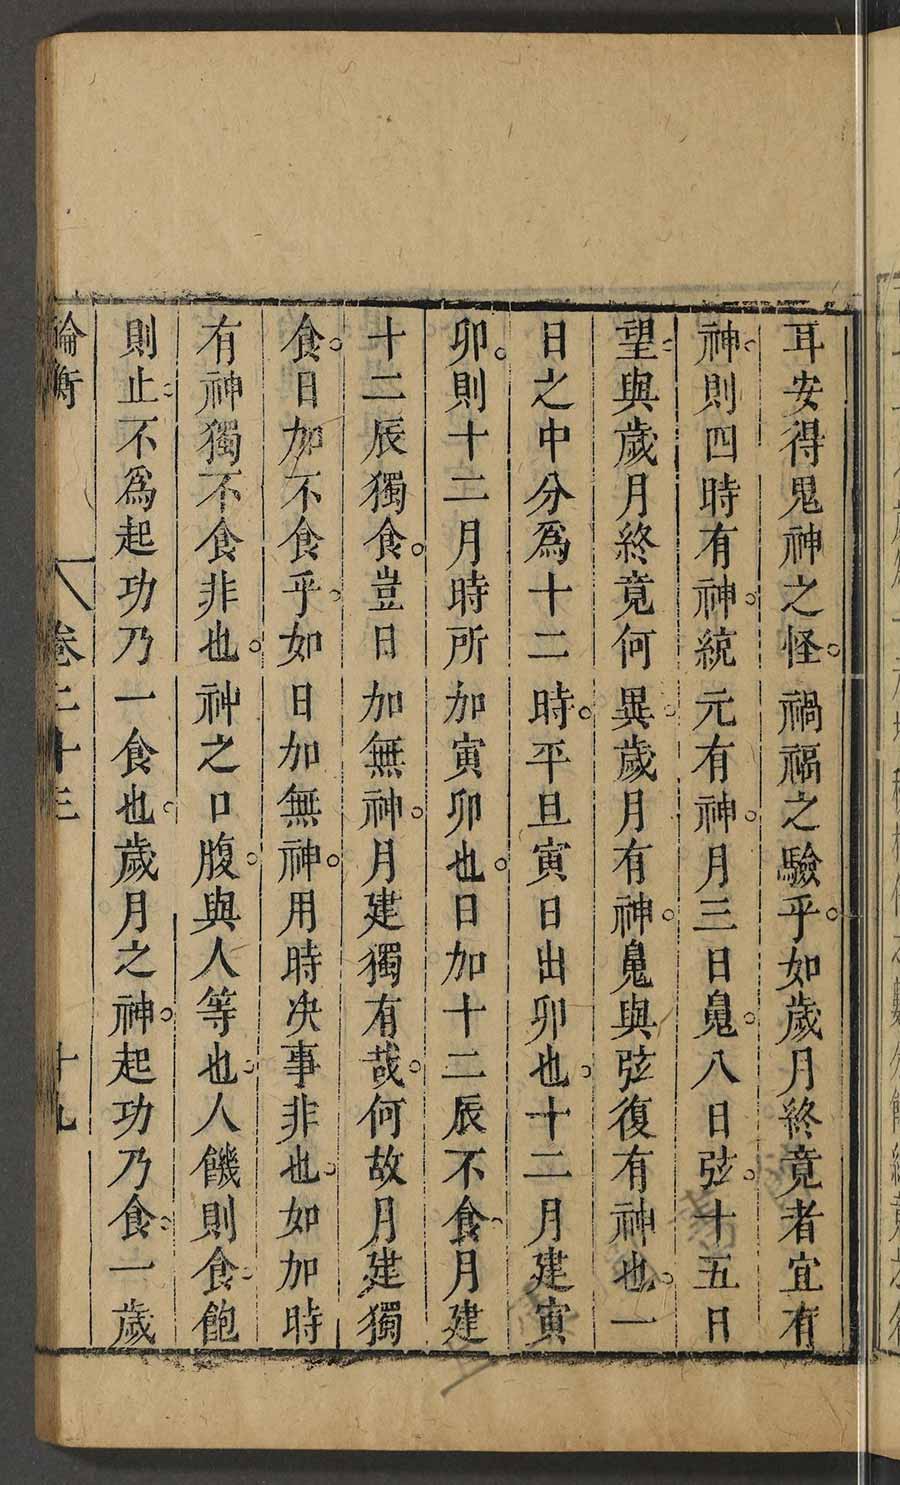 耳安得鬼神之怪。禍福之驗乎。如歲月終竟者宜有
神。則四時有神。統元有神。月三日魄。八日弦。十五日
望。與歲月終竟何異。歲月有神。魄與弦復有神也。一
日之中分爲十二時。平旦寅日出卯也。十二月建寅
卯。則十二月時所加寅卯也。日加十二辰不食。月建
十二辰獨食。豈日加無神。月建獨有哉。何故月建獨
食。日加不食乎。如日加無神。用時決事非也。如加時
有神獨不食非也。神之口腹。與人等也。人饑則食。飽
則止。不爲起功乃一食也。歲月之神。起功乃食。一歲
論衡 卷二十三 十九